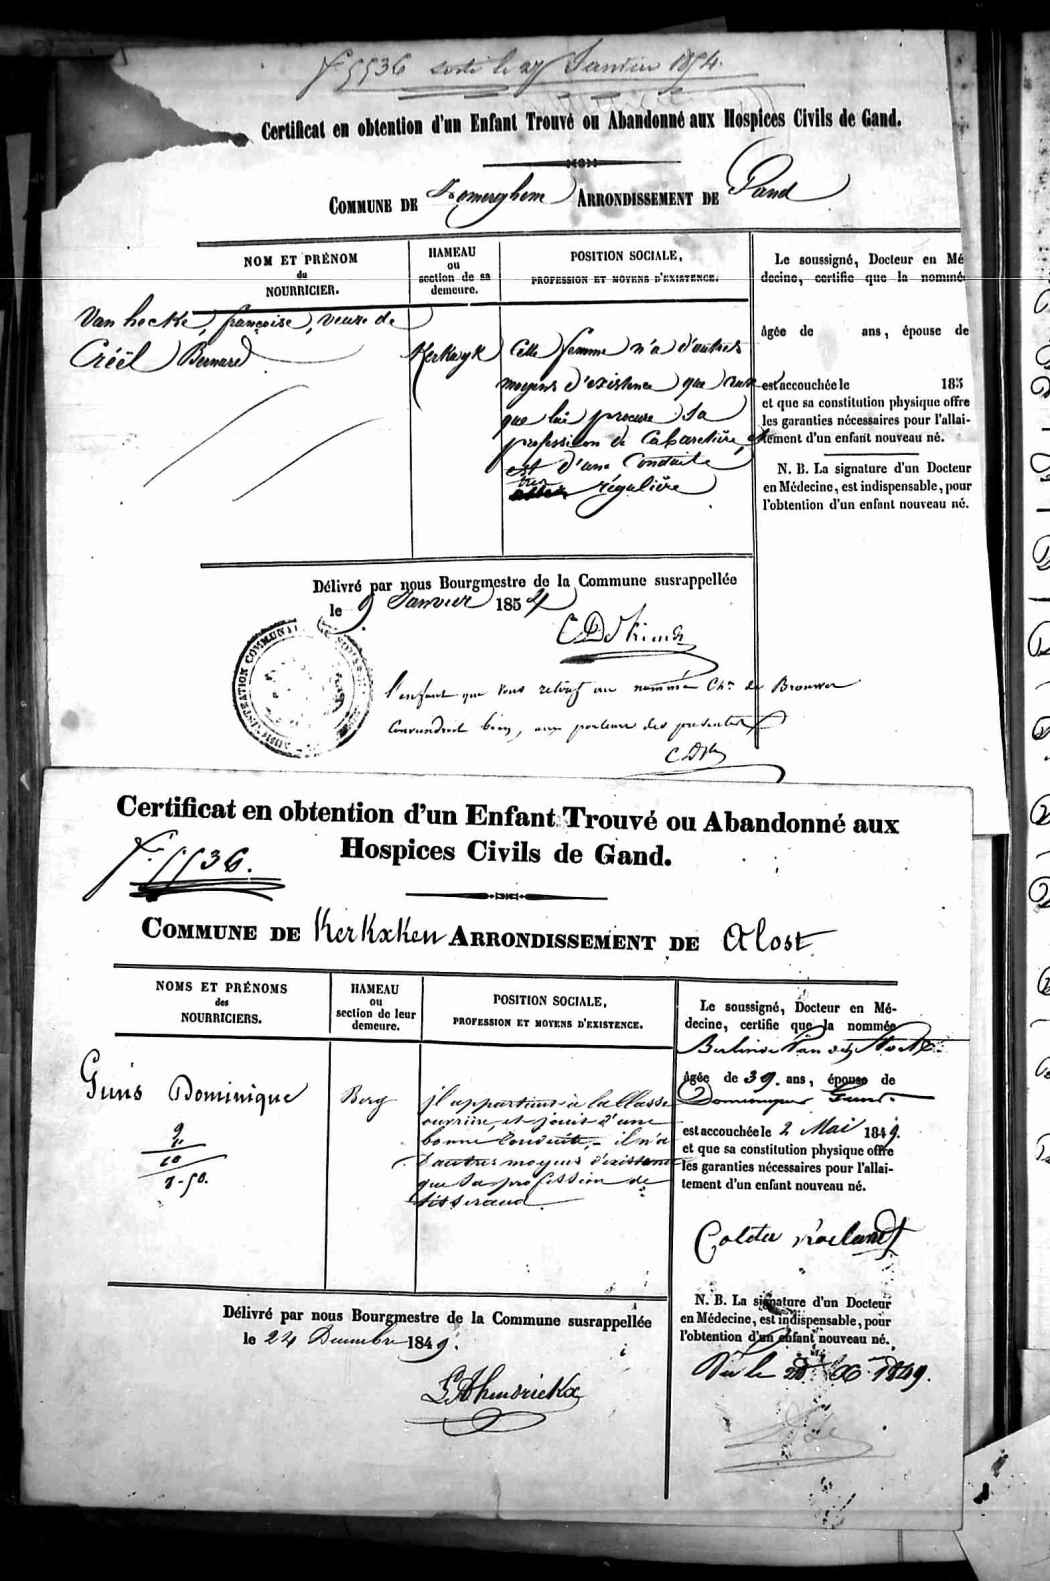 F 5536 sorti le 27 Janvier 1854.
Certificat en obtention d'un Enfant Trouvé ou Abandonné aux Hospices Civils de Gand.
COMMUNE DE Somerghem ARRONDISSEMENT DE Gand
NOM ET PRÉNOM
du
NOURRICIER.
HAMEAU
ou
section de sa
demeure.
POSITION SOCIALE,
PROFESSION ET MOYENS D'EXISTENCE.
Van hecke, françoise, veuve de
Créël Bernard
Kerkwyk
Cette femme n'a d'autres
moyens d'existence que ceux
que lui procure sa
profession de Cabaretière, et
est d'une Conduite
très
régulière
Le soussigné, Docteur en Mé
decine, certifie que la nommée
âgée de ans, épouse de
est accouchée le 185
et que sa constitution physique offre
les garanties nécessaires pour l'allai-
tement d'un enfant nouveau né.
N. B. La signature d'un Docteur
en Médecine, est indispensable, pour
l'obtention d'un enfant nouveau né.
Délivré par nous Bourgmestre de la Commune susrappellée
le 9 Janvier 1854
ADMINISTRATION COMMUNALE
l'enfant que vous au nommé Ch. de Brouwer
Conviendrait bien, aux porteurs des présentes
Certificat en obtention d'un Enfant Trouvé ou Abandonné aux
Hospices Civils de Gand.
F. 5536.
COMMUNE DE Kerkxken ARRONDISSEMENT DE Alost
NOMS ET PRÉNOMS
des
NOURRICIERS.
HAMEAU
ou
section de leur
demeure.
POSITION SOCIALE,
PROFESSION ET MOYENS D'EXISTENCE.
Guns Dominique
Berg
il appartient à la Classe
ouvrière, et jouit d'une
bonne Conduite, - il n'a
d'autres moyens d'existence
que sa profession de
tisserand.
Le soussigné, Docteur en Mé-
decine, certifie que la nommée
âgée de 39. ans, épouse de
Dominique Guns.
est accouchée le 2 Mai 1849.
et que sa constitution physique offre
les garanties nécessaires pour l'allai-
tement d'un enfant nouveau né.
N. B. La signature d'un Docteur
en Médecine, est indispensable, pour
l'obtention d'un enfant nouveau né.
Délivré par nous Bourgmestre de la Commune susrappellée
le 24 Decembre 1849.
Vu le 1849.